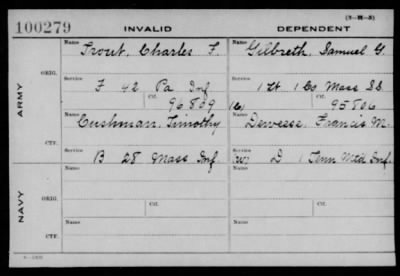 (3-H-5)
100279 INVALID DEPENDENT
Name Name
Trout, Charles F. Gilbreth, Samuel G.
ORIG.
Service Service
F 42 Pa Inf 1 Lt 1 Co Mass S.S.
Ctf. Ctf.
96809 95806
ARMY
Name Name
Cushman, Timothy Deweese, Francis M.
CTF.
Service Service
B 28 Mass Inf (W) D 1 Tenn Mtd Inf.
Name Name
ORIG.
Service Service
Ctf. Ctf.
NAVY
Name Name
CTF.